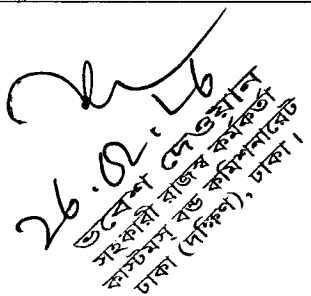 26.02.26
ভবেশ দেওয়ান
সহকারী রাজস্ব কর্মকর্তা
কাস্টমস্ বন্ড কমিশনারেট
ঢাকা (দক্ষিণ), ঢাকা।